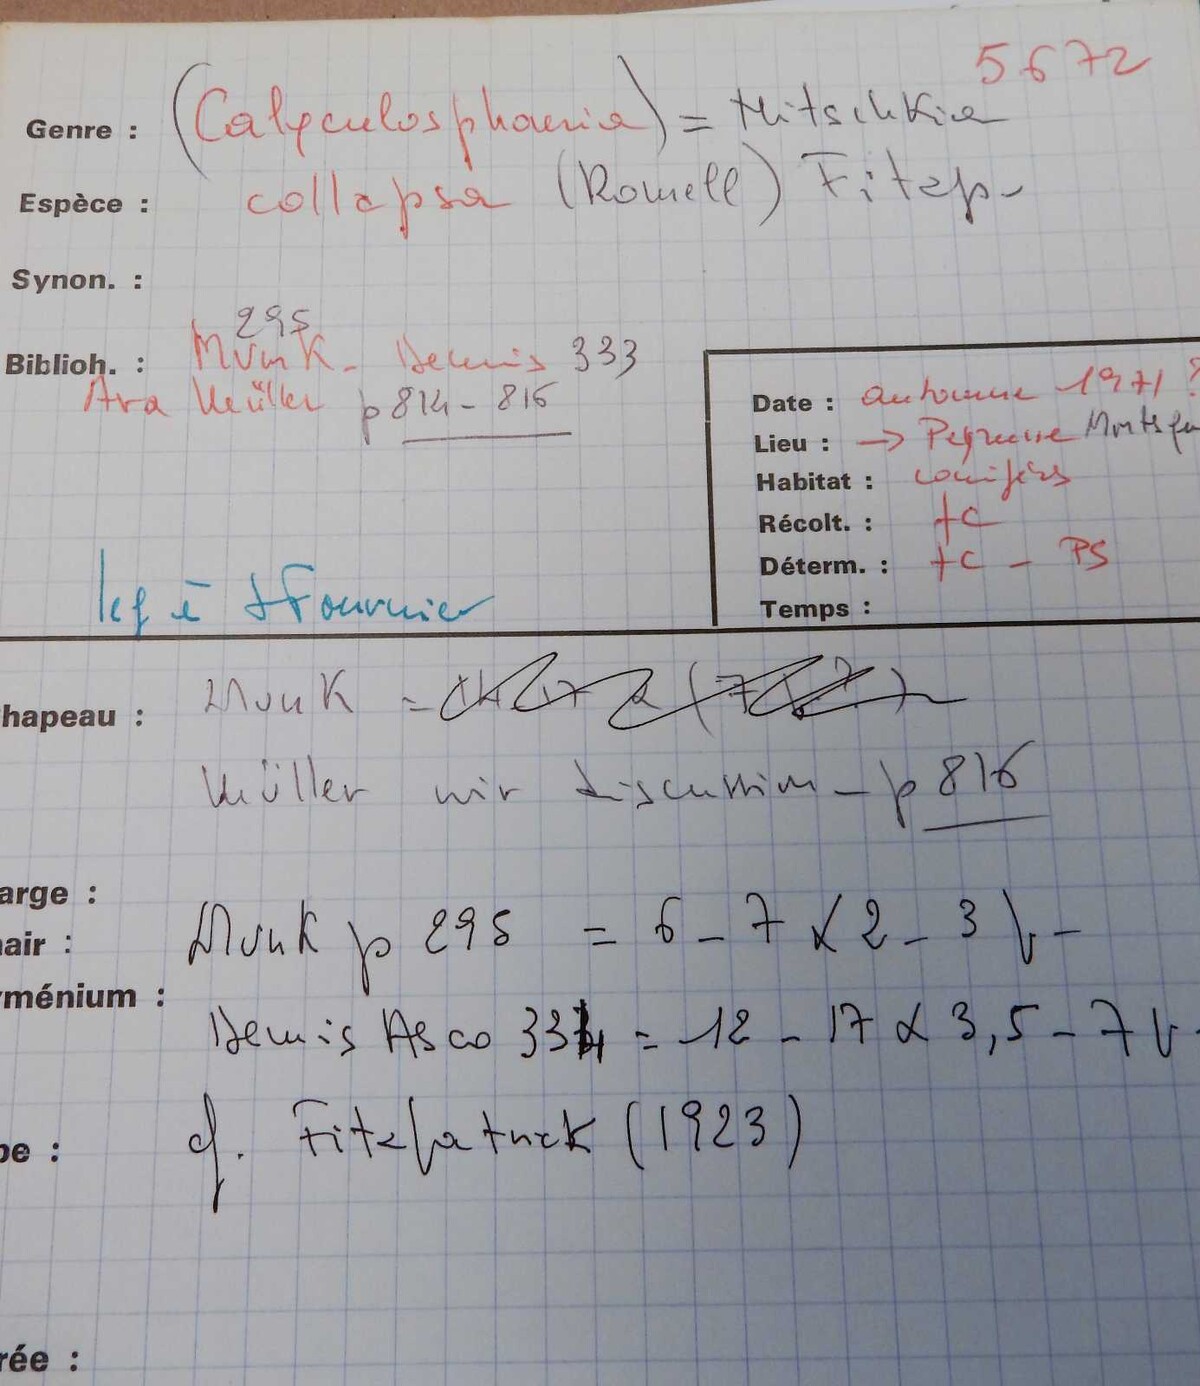 5672
Genre : (Calyculosphaeria) = Nitschkia
Espèce : collapsa (Romell) Fitzp-
Synon. :
295
Biblioh. : Munk - Dennis 333
Arx Müller p 814 - 816
Date : automne 1971 ?
Lieu : → Peyreuse Monts
Habitat : conifères
Récolt. : fc
Déterm. : fc - PS
Temps :
leg à J Fournier
hapeau : Munk =
Müller voir discussion - p 816
arge :
Munk p 295 = 6 - 7 x 2 - 3 µ -
air :
yménium :
Dennis Asco 334 = 12 - 17 x 3,5 - 7 µ
cf. Fitzpatrick (1923)
pe :
rée :